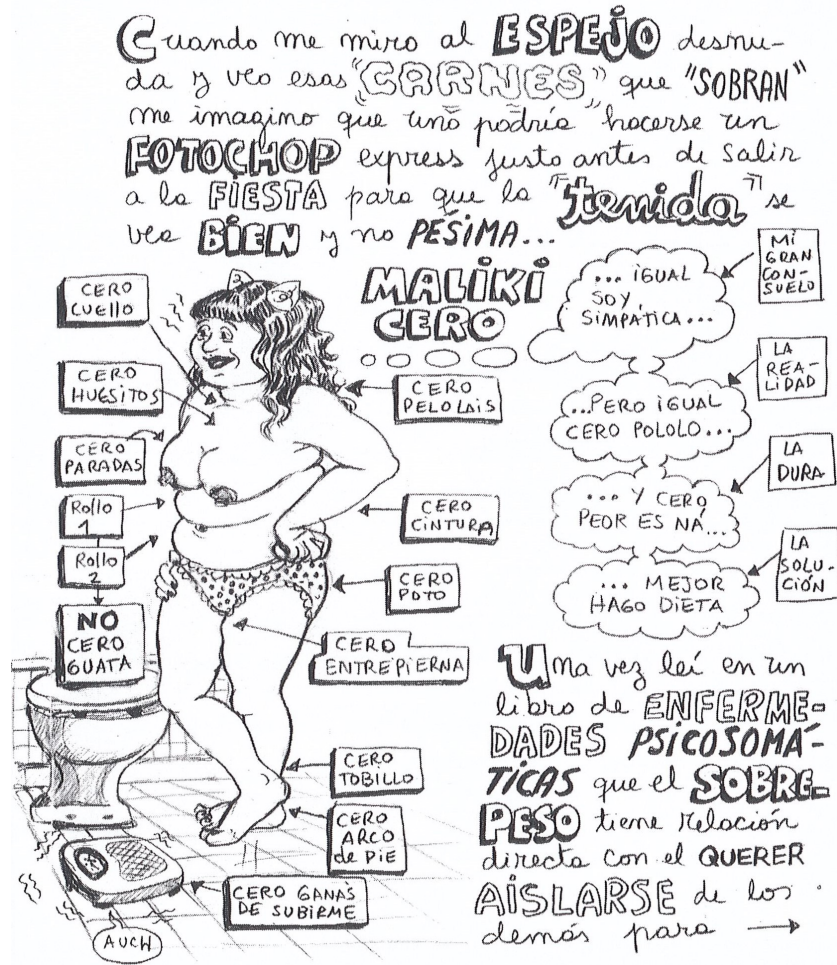 Cuando me miro al ESPEJO desnu-
da y veo esas "CARNES" que "SOBRAN"
me imagino que uno podría hacerse un
FOTOCHOP express justo antes de salir
a la FIESTA para que la "tenida" se
vea BIEN y no PÉSIMA...
MALIKI
CERO
CERO
CUELLO
CERO
HUESITOS
CERO
PARADAS
Rollo
1
Rollo
2
NO
CERO
GUATA
CERO
PELO LAIS
CERO
CINTURA
CERO
POTO
CERO
ENTREPIERNA
CERO
TOBILLO
CERO
ARCO
de PIE
CERO GANAS
DE SUBIRME
AUCH
... IGUAL
SOY
SIMPÁTICA...
MI
GRAN
CON-
SUELO
...PERO IGUAL
CERO POLOLO...
LA
REA-
LIDAD
... Y CERO
PEOR ES NÁ...
LA
DURA
... MEJOR
HAGO DIETA
LA
SOLU-
CIÓN
Una vez leí en un
libro de ENFERME-
DADES PSICOSOMÁ-
TICAS que el SOBRE-
PESO tiene relación
directa con el QUERER
AISLARSE de los
demás para →